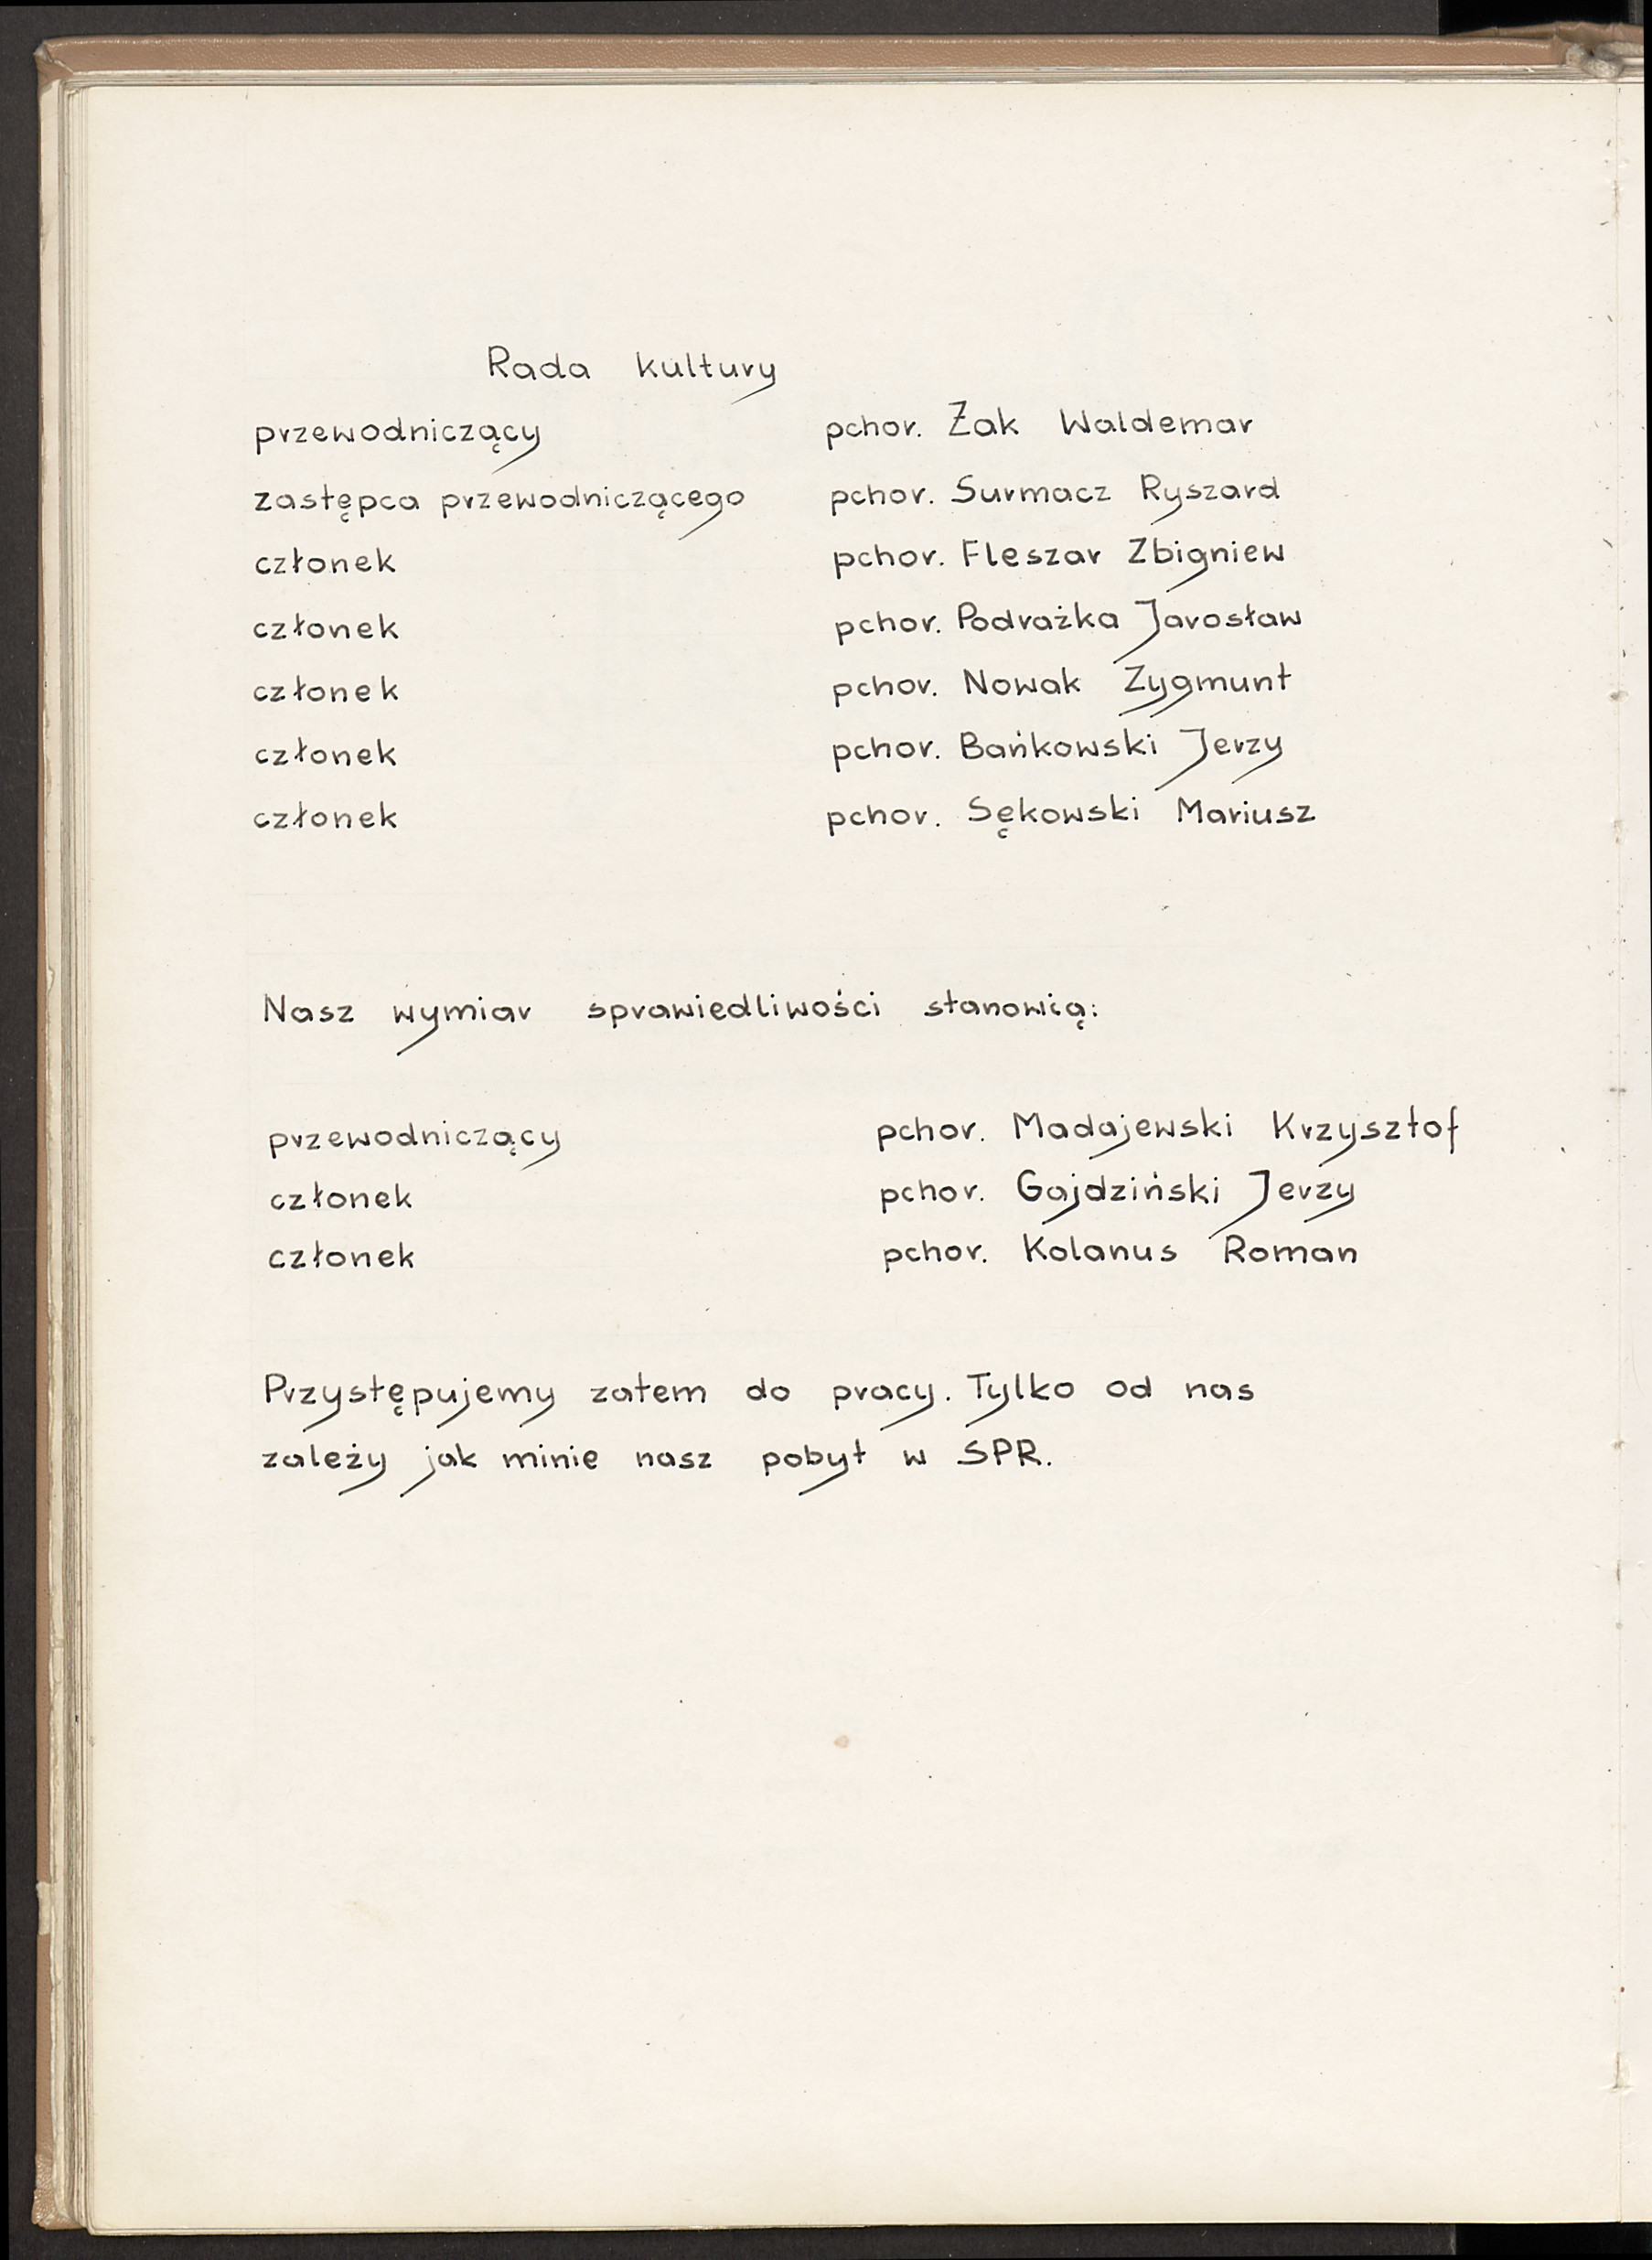 Rada kultury
przewodniczący pchor. Żak Waldemar
zastępca przewodniczącego pchor. Surmacz Ryszard
członek pchor. Fleszar Zbigniew
członek pchor. Podrażka Jarosław
członek pchor. Nowak Zygmunt
członek pchor. Bańkowski Jerzy
członek pchor. Sękowski Mariusz
Nasz wymiar sprawiedliwości stanowią:
przewodniczący pchor. Madajewski Krzysztof
członek pchor. Gajdziński Jerzy
członek pchor. Kolanus Roman
Przystępujemy zatem do pracy. Tylko od nas
zależy jak minie nasz pobyt w SPR.